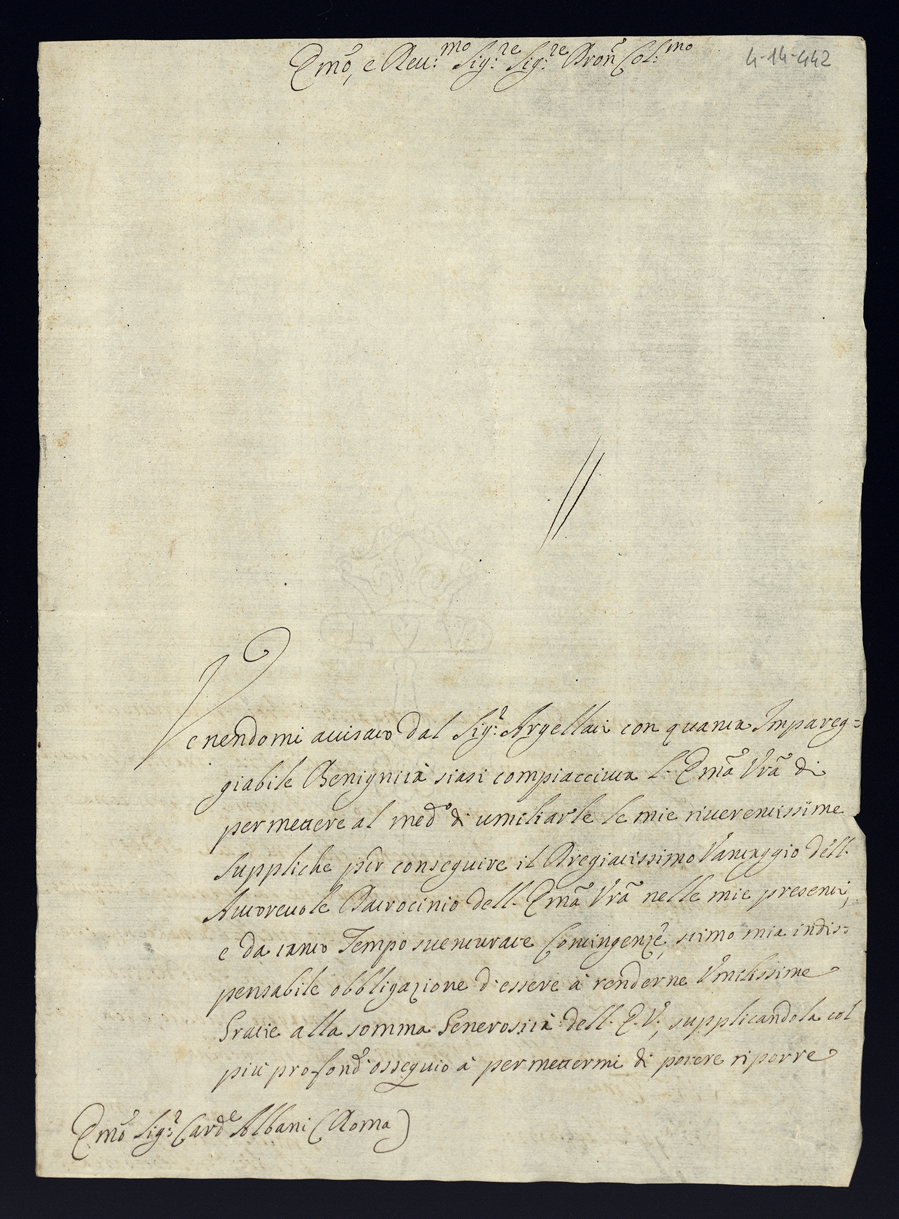 Emo, e Reu:mo Sig:re Sig:re Pron Col:mo
4-14-442
Venendomi auisato dal Sig:r Argellati con quanta Impareg=
giabile Benignità siasi compiacciuta l'Ema Vra di
permettere al medo di umiliarle le mie riuerentissime
Suppliche per conseguire il Pregiatissimo Vantaggio dell'
Autoreuole Patrocinio dell'Ema Vra nelle mie presenti,
e da tanto Tempo suenturate Contingenze, stimo mia indis=
pensabile obbligazione d'essere à renderne Vmilissime
Gratie alla somma Generosità dell'E.V., supplicandola col
più profond'ossequio à permettermi di potere riporre
Emo Sig:r Carde Albani (Roma)